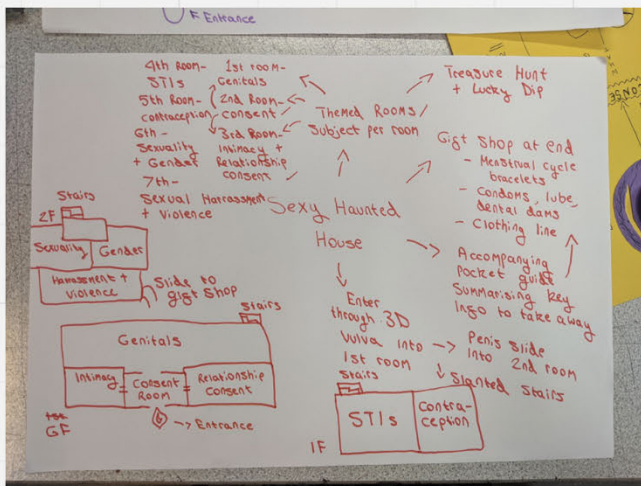 F Entrance
4th Room -
STIs
5th Room -
contraception
6th -
Sexuality
+ Gender
7th -
Sexual Harrassment
+ Violence
1st room -
Genitals
2nd Room -
consent
3rd Room -
Intimacy +
Relationship
consent
Themed Rooms /
Subject per room
Treasure Hunt
+ Lucky Dip
Gift Shop at end
- Menstrual cycle
bracelets
- Condoms, lube,
dental dams
- Clothing line
Sexy Haunted
House
Accompanying
pocket guide
Summarising key
Info to take away
Enter
through 3D
Vulva into
1st room
Penis slide
into 2nd room
Slanted Stairs
Stairs
2F
Sexuality
Gender
Harassment +
Violence
Slide to
gift shop
Stairs
Genitals
Intimacy
Consent
Room
Relationship
Consent
GF
Entrance
Stairs
STIs
Contra-
ception
1F